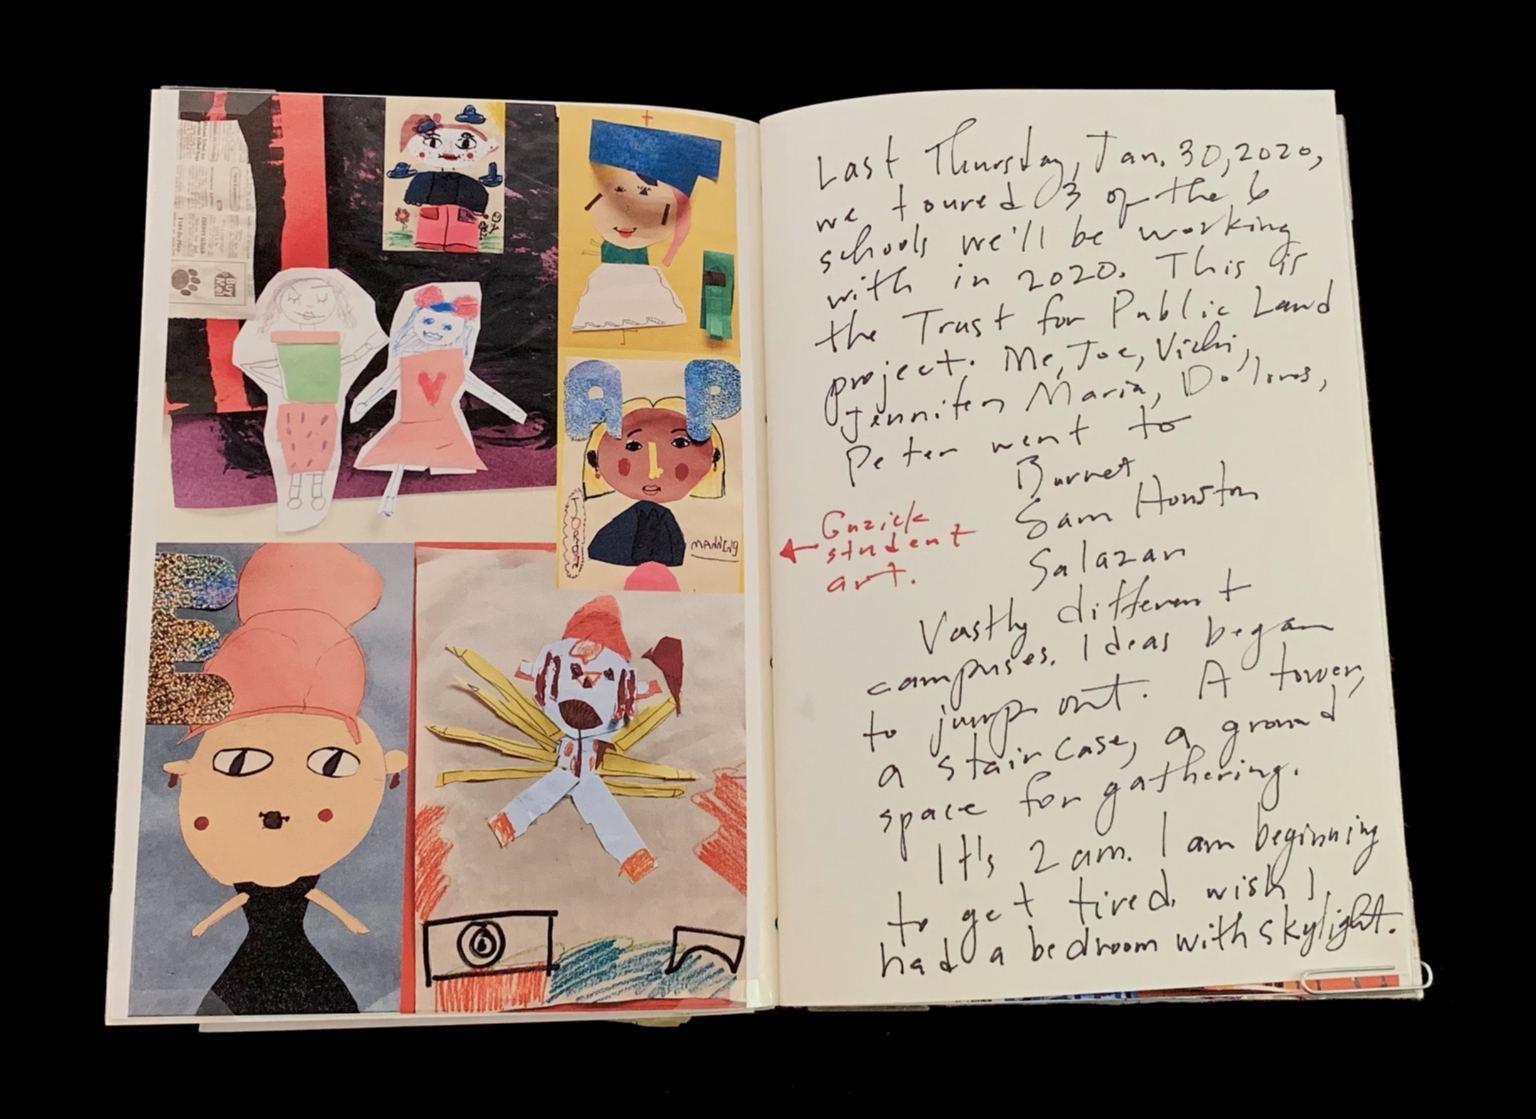 A P
MANNING
E
Last Thursday, Jan. 30, 2020,
we toured 3 of the 6
schools we'll be working
with in 2020. This is
the Trust for Public Land
project. Me, Joe, Vicki,
Jennifer, Maria, Do'lores,
Peter went to
Burnet
Sam Houston
Salazar
Guzick
student
art.
Vastly different
campuses. Ideas began
to jump out. A tower,
a staircase, a grand
space for gathering.
It's 2 am. I am beginning
to get tired. wish I
had a bedroom with skylight.